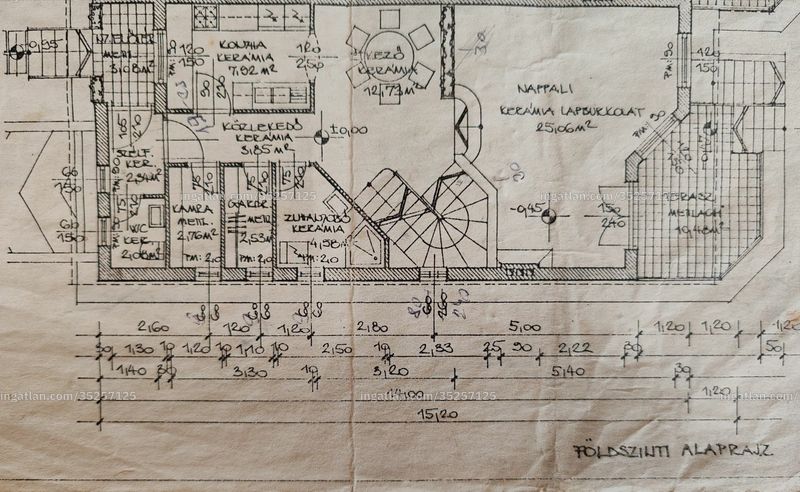 -0,35
3,08 m²
120
150
KONYHA
KERÁMIA
7,92 m²
120
250
90
210
KERÁMIA
12,73 m²
NAPPALI
KERÁMIA LAPBURKOLAT
25,06 m²
120
150
KÖZLEKEDŐ
KERÁMIA
3,85 m²
±0,00
SZÉLF.
KER.
2,34 m²
WC
KER.
2,08 m²
60
150
60
150
KAMRA
METL.
2,76 m²
METL.
2,53 m²
ZUHANYOZÓ
KERÁMIA
4,58 m²
75
210
75
210
-0,45
150
240
TERASZ
METLACHI
19,48 m²
2,60
120
1,20
2,80
5,00
1,20
1,20
1,20
30
1,30
10
1,20
10
1,10
10
2,50
10
2,33
25
90
2,22
30
50
1,40
30
3,30
10
3,20
5,40
30
14,00
1,20
15,20
FÖLDSZINTI ALAPRAJZ
ingatlan.com/35257125
ingatlan.com/35257125
ingatlan.com/35257125
ingatlan.com/35257125
ingatlan.com/35257125
ingatlan.com/35257125